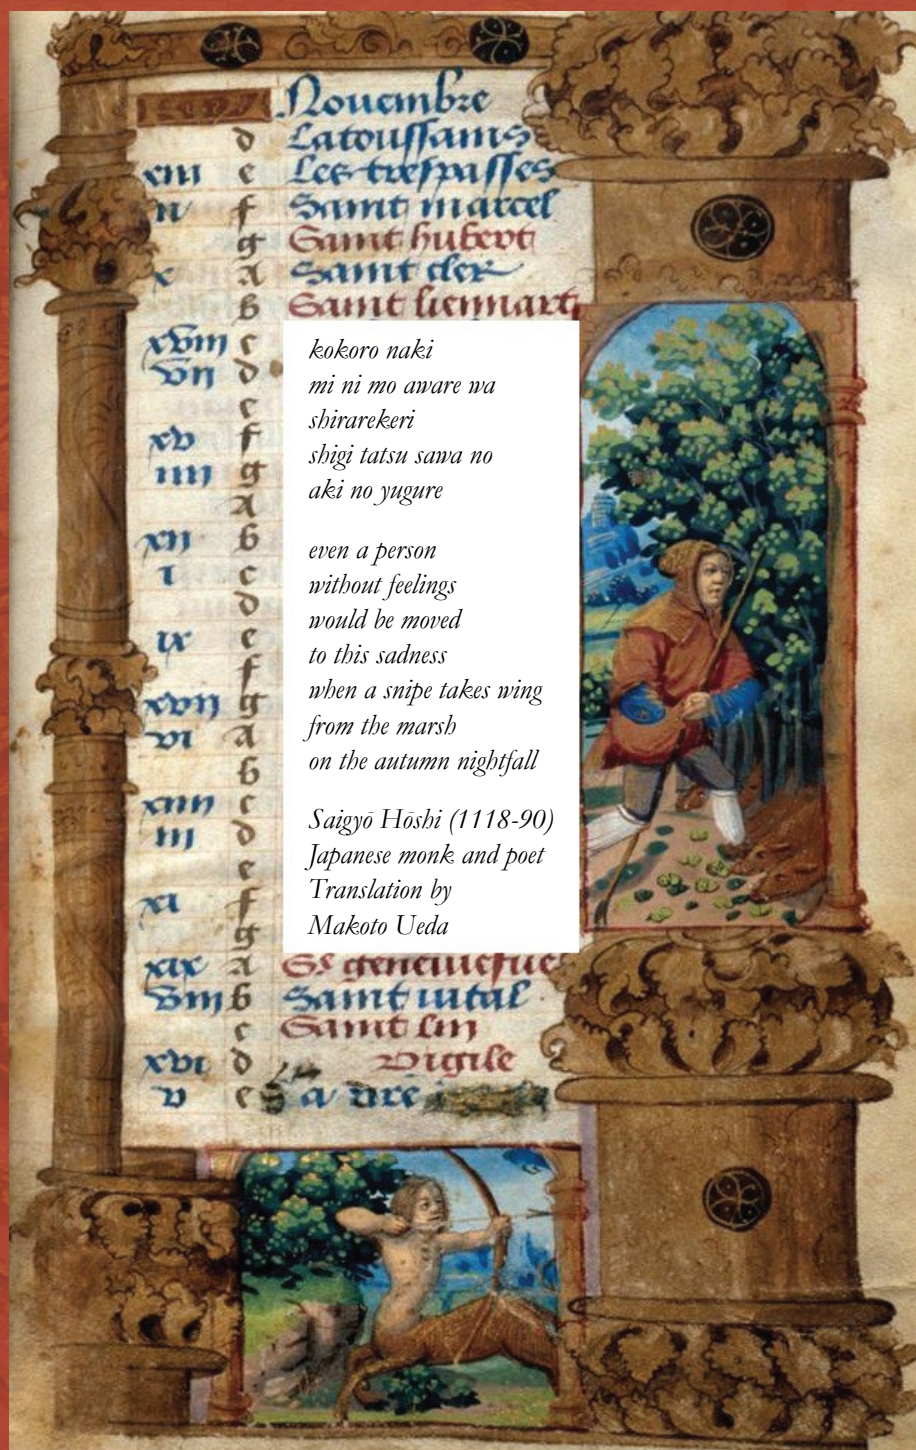 Nouembre
d Latoussains
xiii e Les trespasses
ii f Saint marcel
g Saint hubert
x A Saint cler
b Saint liennart
xviii c
vii d
e
xv f
iiii g
A
xii b
i c
d
ix e
f
xvii g
vi A
b
xiiii c
iii d
e
xi f
g
xix A Se geneuiefue
viii b Saint vital
c Saint lin
xvi d Vigile
v e
kokoro naki
mi ni mo aware wa
shirarekeri
shigi tatsu sawa no
aki no yugure
even a person
without feelings
would be moved
to this sadness
when a snipe takes wing
from the marsh
on the autumn nightfall
Saigyō Hōshi (1118-90)
Japanese monk and poet
Translation by
Makoto Ueda